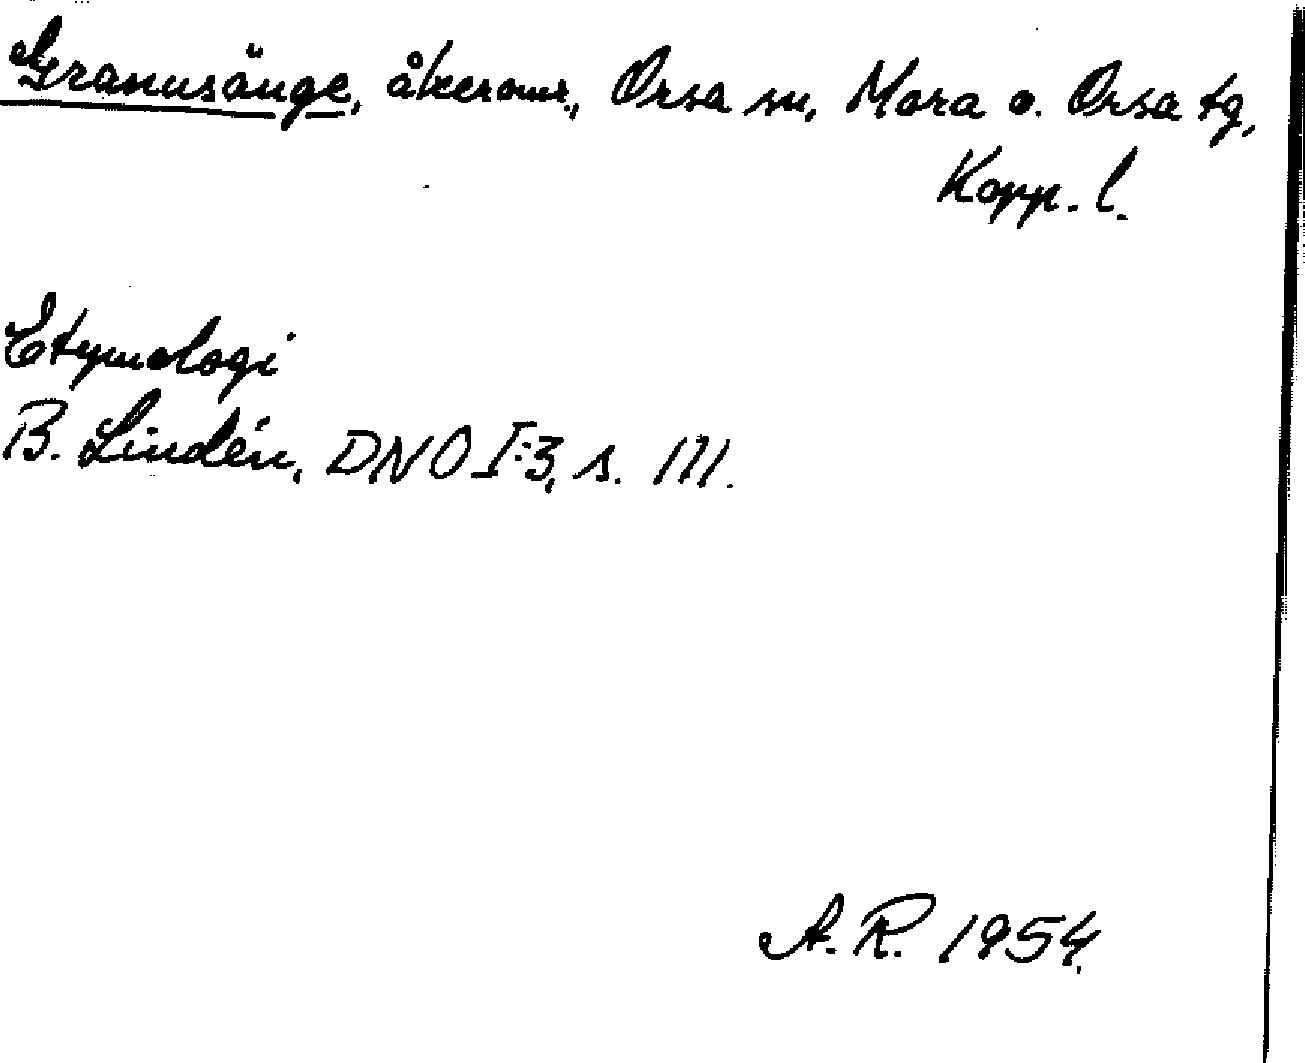 Grannsänge, åkeromr., Orsa sn, Mora o. Orsa tg,
Kopp. l.
Etymologi
B. Lindén, DNO I:3, s. 111.
A.R. 1954.